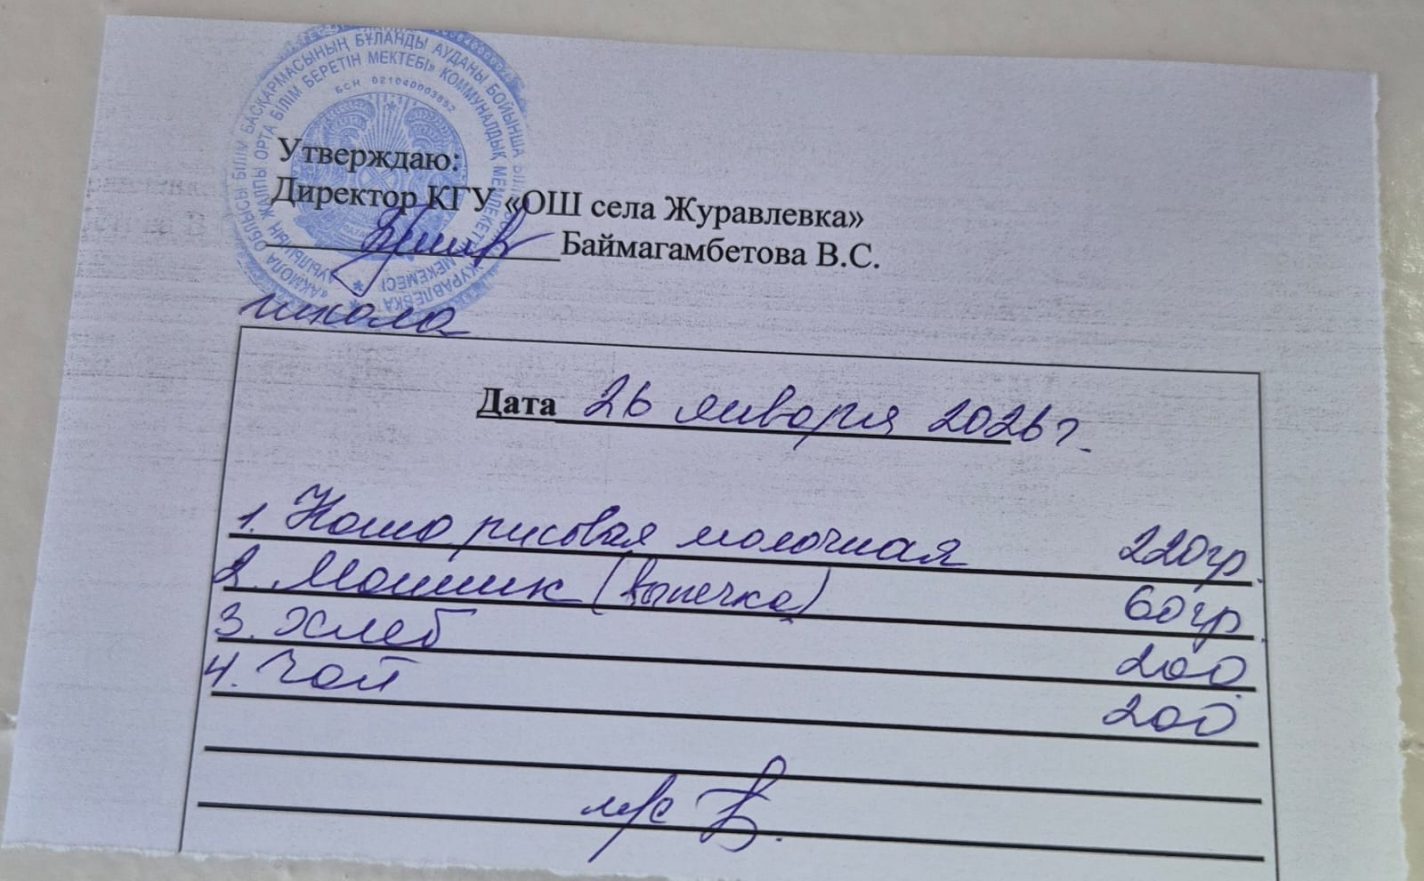 «АҚМОЛА ОБЛЫСЫ БІЛІМ БАСҚАРМАСЫНЫҢ БҰЛАНДЫ АУДАНЫ БОЙЫНША БІЛІМ
ЖУРАВЛЕВКА
АУЫЛЫНЫҢ ЖАЛПЫ ОРТА БІЛІМ БЕРЕТІН МЕКТЕБІ» КОММУНАЛДЫҚ МЕМЛЕКЕТТІК МЕКЕМЕСІ
БСН 021040003852
Утверждаю:
Директор КГУ «ОШ села Журавлевка»
Баймагамбетова В.С.
школа
Дата 26 января 2026 г.
1. Каша рисовая молочная 220гр.
2. Машик (выпечка) 60гр.
3. Хлеб 200
4. Чай 200
м/с